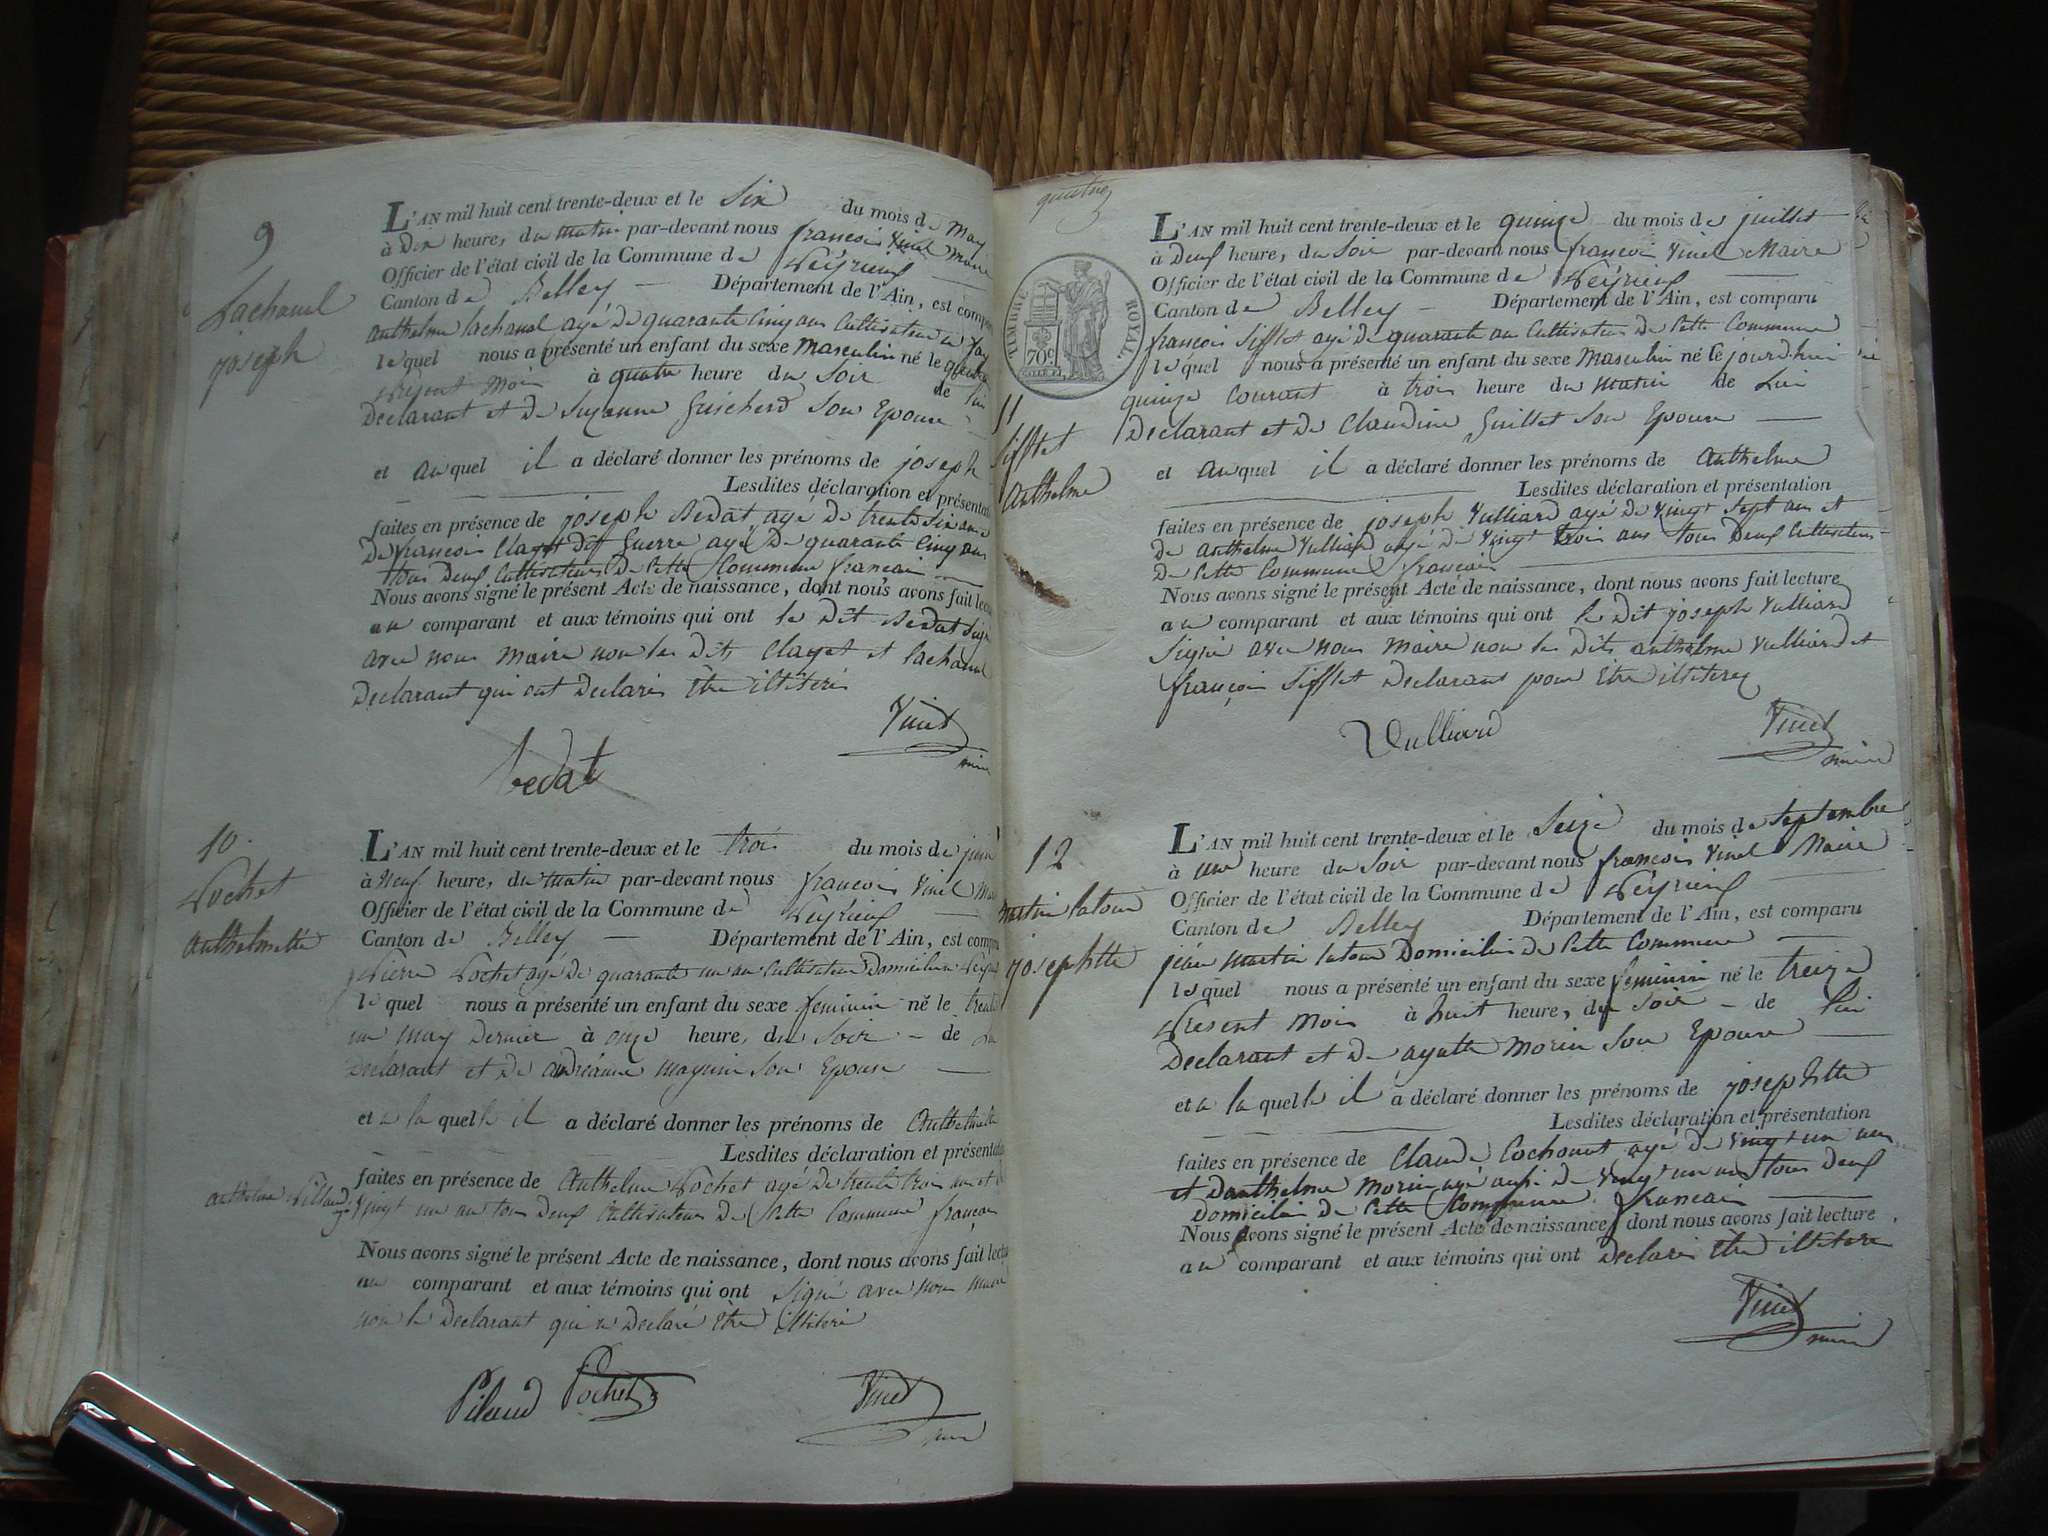 9
Lachanel
joseph
L'AN mil huit cent trente-deux et le Six du mois de May
à Dix heure, du matin par-devant nous francois Vinet Maire
Officier de l'état civil de la Commune de Peÿrieux
Canton de Belley — Département de l'Ain, est
anthelme lachanel agé de quarante Cinq ans Cultivateur
lequel nous a présenté un enfant du sexe Masculin né le
Present Mois à quatre heure du Soir de lui
Declarant et De Suzanne Guicherd Son Epouse
et auquel il a déclaré donner les prénoms de joseph
Lesdites déclaration et
faites en présence de joseph Bedat agé de trente Six ans
De francois Clayet dit Guerre agé De quarante Cinq ans
tous Deux Cultivateurs De Cette Commune francais
Nous avons signé le présent Acte de naissance, dont nous avons fait
au comparant et aux témoins qui ont le Dit Bedat Signé
avec nous Maire non les Dits Clayet et lachanel
Declarant qui ont Declarés être illitéré
Vinet
maire
bedat
10.
Pochet
Anthelmette
L'AN mil huit cent trente-deux et le trois du mois de juin
à Neuf heure, du matin par-devant nous francois Vinet
Officier de l'état civil de la Commune de Peyrieux
Canton de Belley — Département de l'Ain, est
Pierre Pochet agé De quarante un an Cultivateur Domicilié
lequel nous a présenté un enfant du sexe feminin né le trente
un may Dernier à onze heure, du Soir — de
Declarant et De andréanne Magnin Son Epouse
et a la quelle il a déclaré donner les prénoms de Anthelmette
Lesdites déclaration et
faites en présence de Anthelme Pochet agé De trente trois ans et
anthelme Pillaud
Vingt un an tous Deux Cultivateurs De Cette Commune françai
Nous avons signé le présent Acte de naissance, dont nous avons fait
au comparant et aux témoins qui ont Signé avec nous maire
non le Declarant qui a Declaré être illitéré
Pilaud Pochet Vinet
maire
quatre
TIMBRE ROYAL.
70c
11
Sifflet
Anthelme
L'AN mil huit cent trente-deux et le quinze du mois de juillet
à Deux heure, du Soir par-devant nous francois Vinet Maire
Officier de l'état civil de la Commune de Peÿrieux
Canton de Belley — Département de l'Ain, est comparu
francois Sifflet agé de quarante an Cultivateur De Cette Commune
lequel nous a présenté un enfant du sexe Masculin né le jourdhui
quinze Courant à trois heure du Matin de Lui
Declarant et De Claudine Guillet Son Epouse
et Auquel il a déclaré donner les prénoms de Anthelme
Lesdites déclaration et présentation
faites en présence de joseph Vulliard agé de Vingt Sept ans et
De Anthelme Vulliard agé De Vingt trois ans tous Deux Cultivateurs
De Cette Commune francais
Nous avons signé le présent Acte de naissance, dont nous avons fait lecture
au comparant et aux témoins qui ont le Dit joseph Vulliard
Signé avec nous Maire non les Dits anthelme Vulliard et
françois Sifflet Declarant pour Etre illiterez
Vulliard
Vinet
maire
12
Martin latour
josephtte
L'AN mil huit cent trente-deux et le Seize du mois de Septembre
à une heure du Soir par-devant nous francois Vinet Maire
Officier de l'état civil de la Commune de Peÿrieux
Canton de Belley Département de l'Ain, est comparu
jean Martin latour Domicilié De Cette Commune
lequel nous a présenté un enfant du sexe feminin né le treize
Present Mois à huit heure, du Soir — de Lui
Declarant et De agatte Morin Son Epouse
et a la quelle il a déclaré donner les prénoms de josephtte
Lesdites déclaration et présentation
faites en présence de Claude Cochonat agé De Vingt un ans
et Danthelme Morin agé aussi De Vingt un ans tous Deux
Domiciliés De Cette Commune francais
Nous avons signé le présent Acte de naissance, dont nous avons fait lecture
au comparant et aux témoins qui ont Declaré Etre illitéré
Vinet
maire